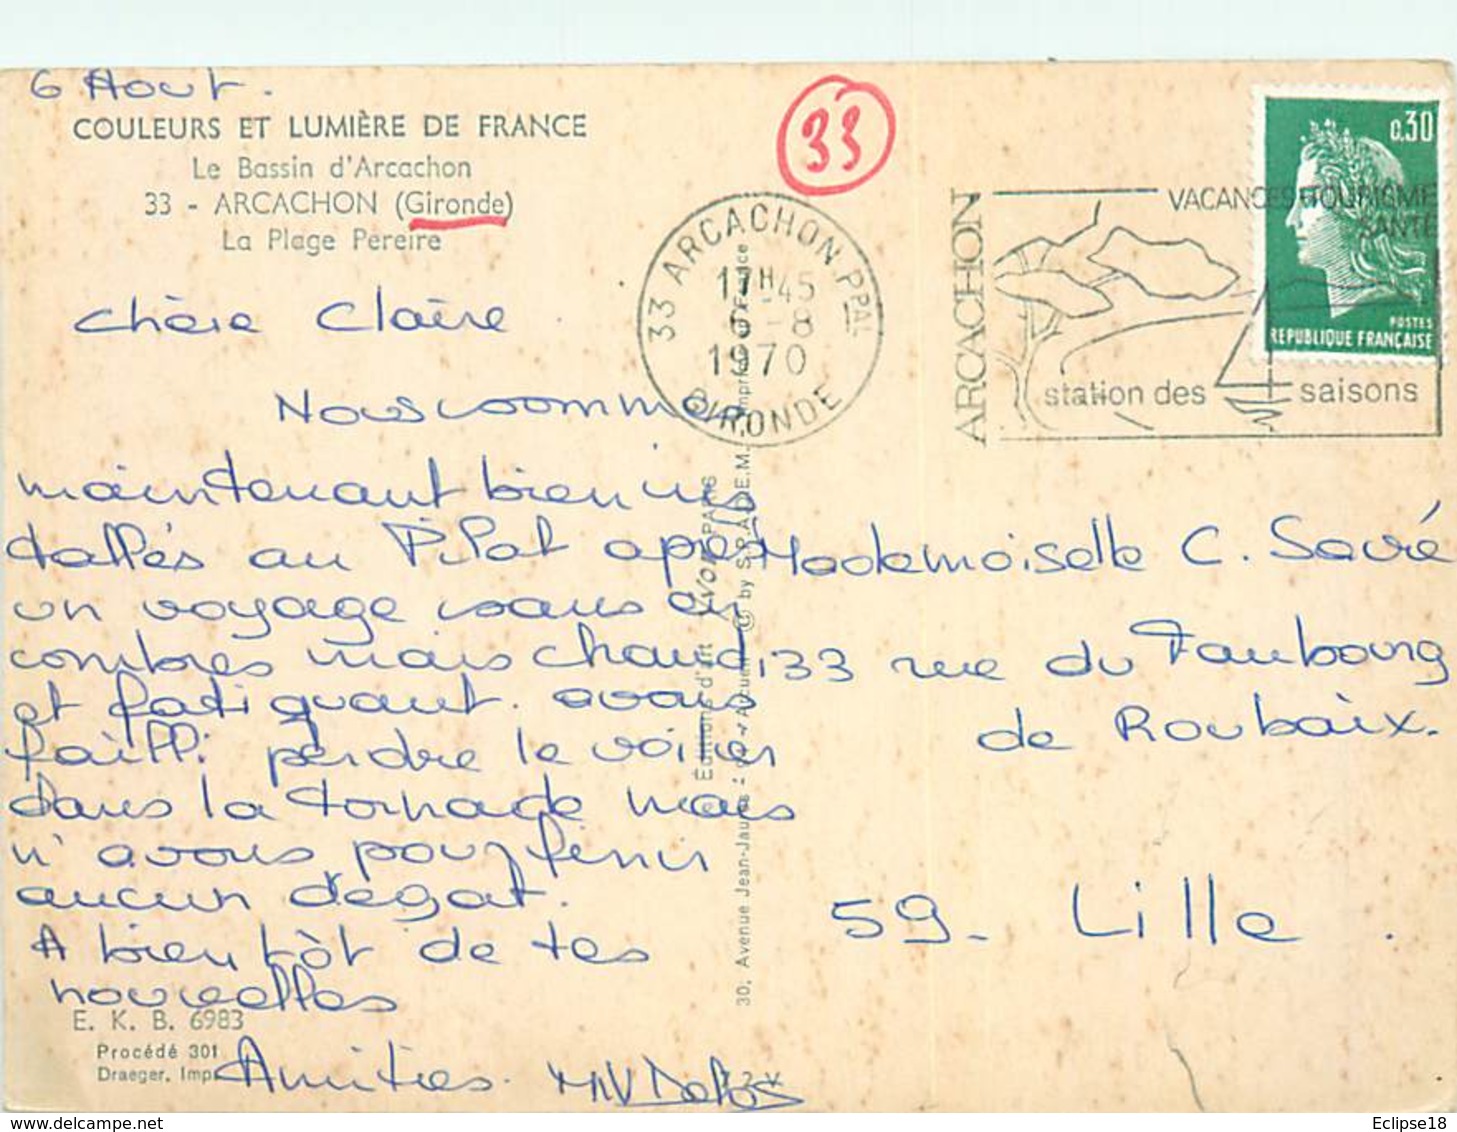 6 Aout.
COULEURS ET LUMIÈRE DE FRANCE
Le Bassin d'Arcachon
33 - ARCACHON (Gironde)
La Plage Pereire
Chère Claire
Nous sommes
maintenant bien ins
tallés au Pilat après
un voyage sans en
combres mais chaud
et fatiguant. avons
failli perdre le voilier
dans la tornade mais
n'avons pour finir
aucun dégat.
A bientôt de tes
nouvelles
Amitiés.
E. K. B. 6983
Procédé 301
Draeger, Imp.
33
33 ARCACHON PPAL
17H45
6-8
1970
GIRONDE
ARCACHON
VACANCES TOURISME
SANTÉ
station des saisons
0.30
POSTES
REPUBLIQUE FRANÇAISE
Editions d'art YVON PARIS
30, Avenue Jean-Jaurès
by S.P.A.D.E.M.
Mademoiselle C. Savré
133 rue du Faubourg
de Roubaix.
59 - Lille.
Eclipse18